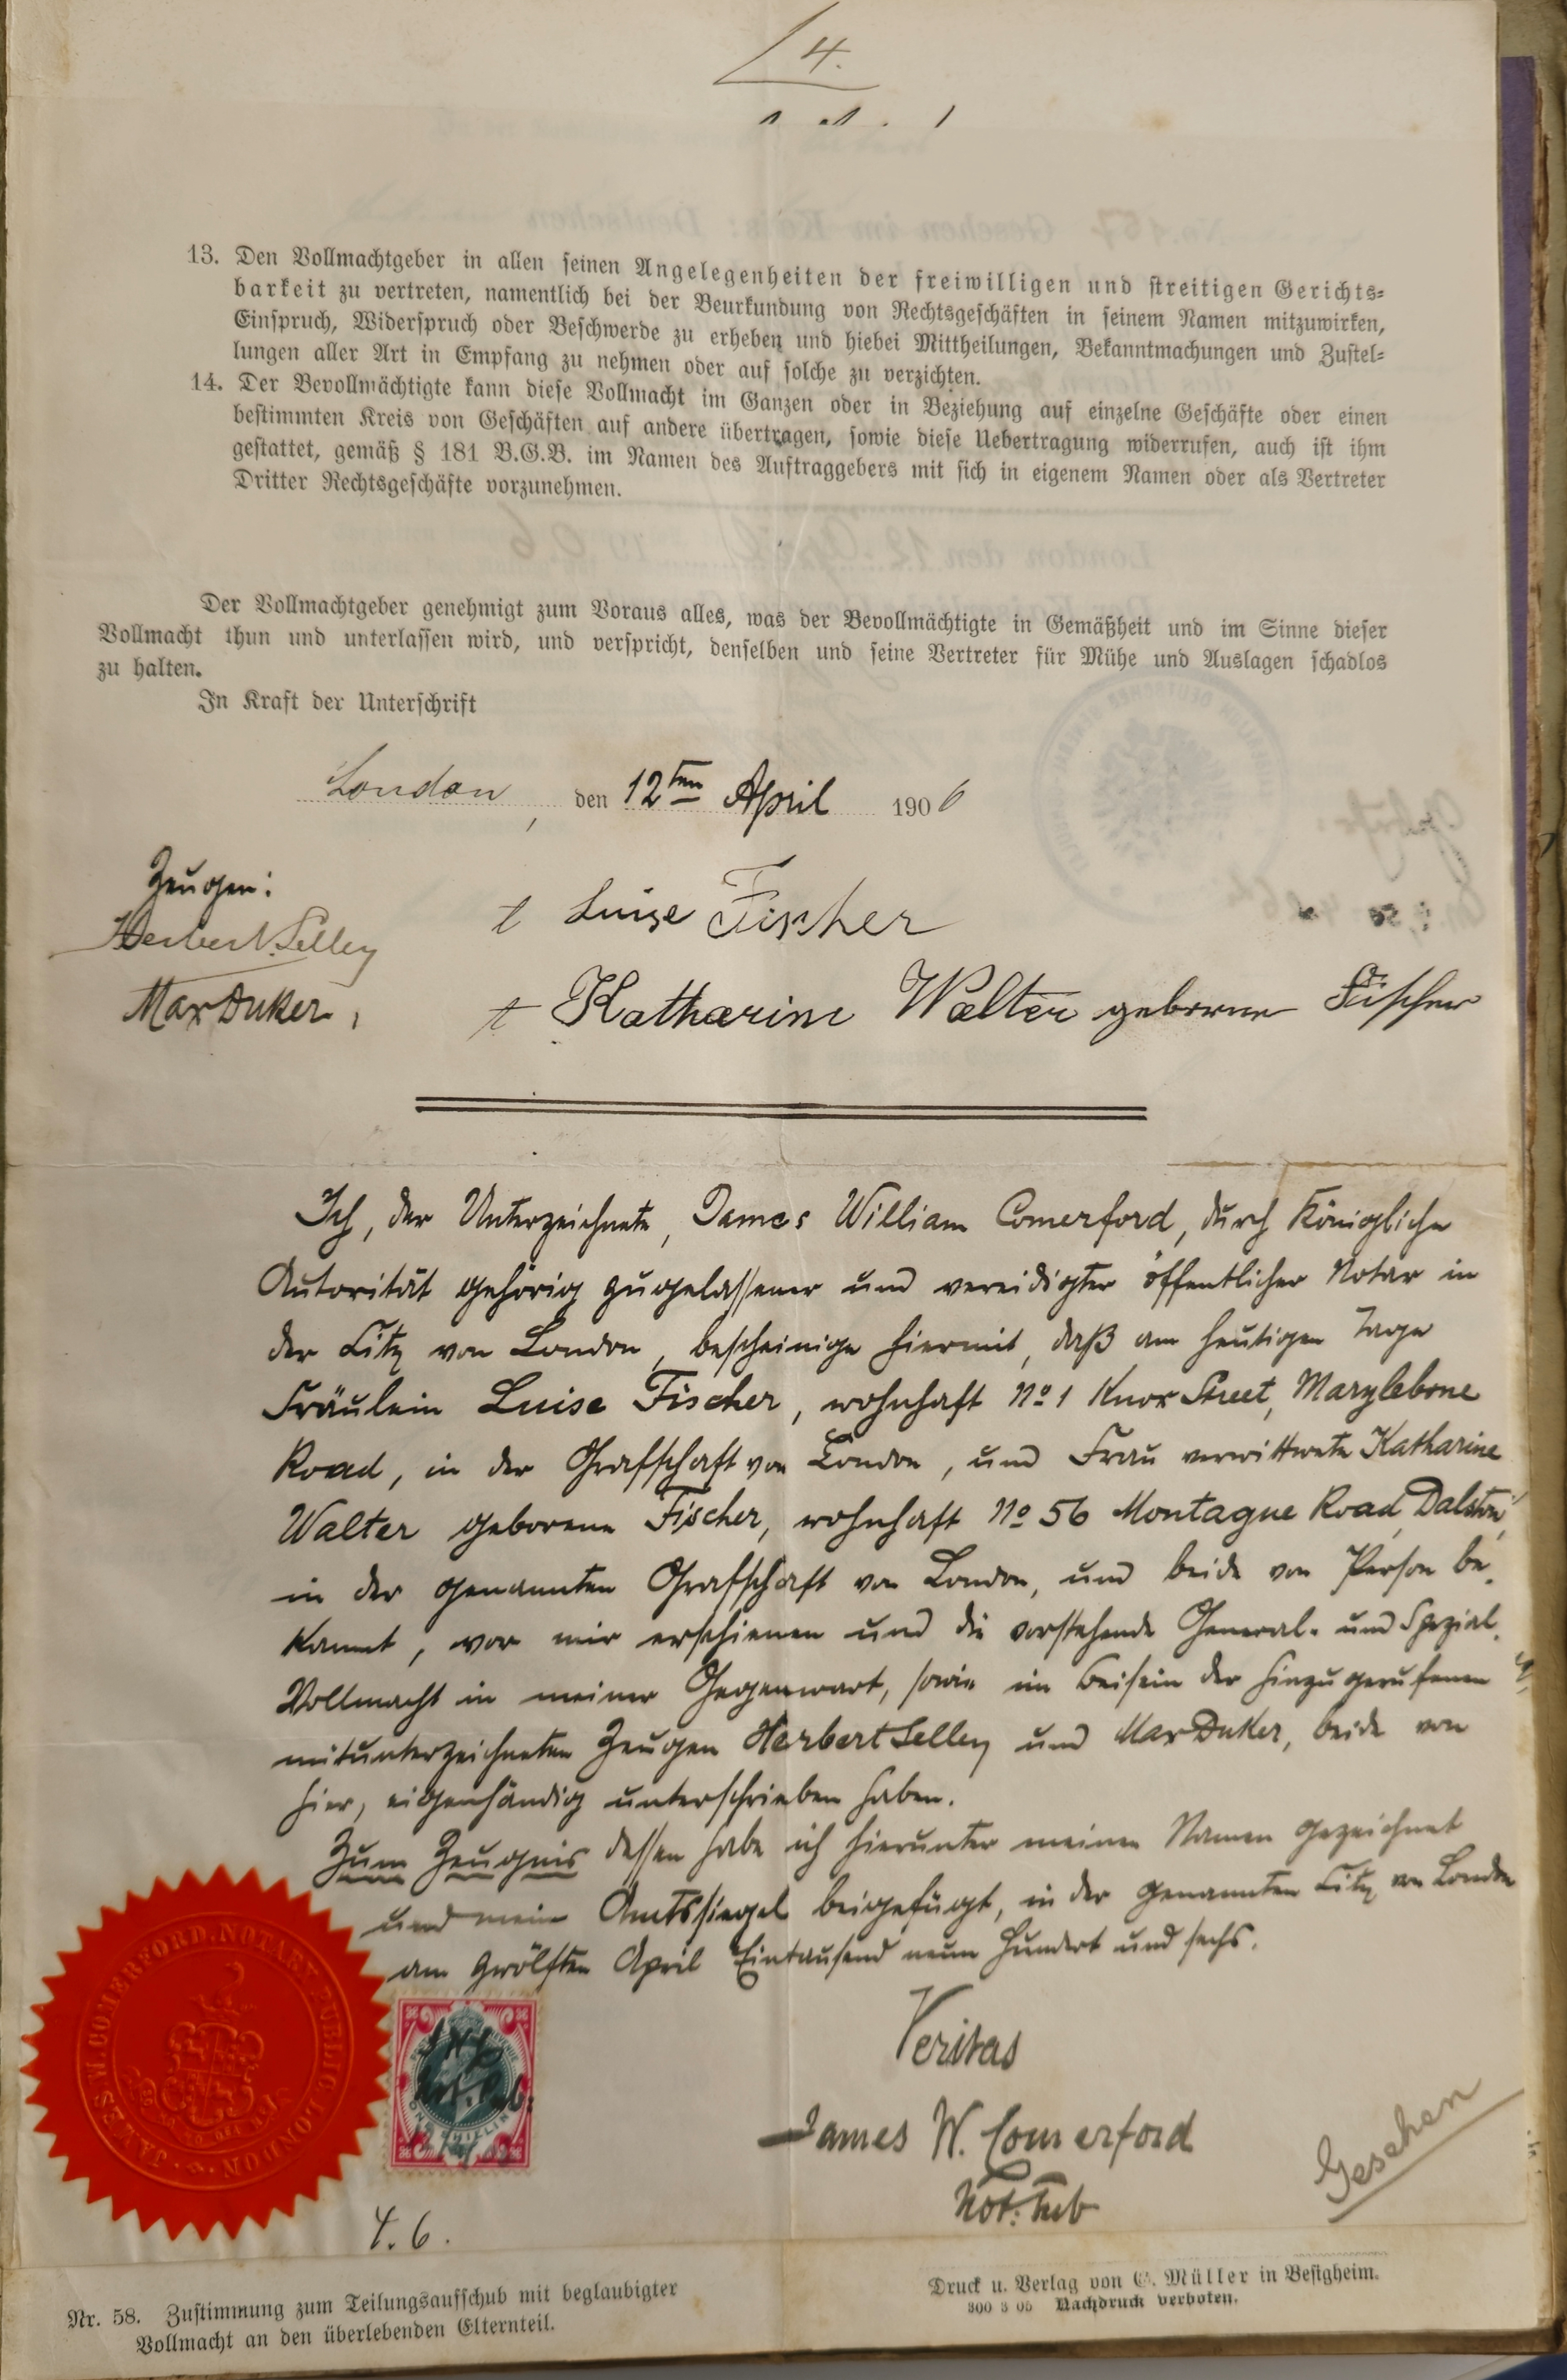 4.
13. Den Vollmachtgeber in allen seinen Angelegenheiten der freiwilligen und streitigen Gerichts=
barkeit zu vertreten, namentlich bei der Beurkundung von Rechtsgeschäften in seinem Namen mitzuwirken,
Einspruch, Widerspruch oder Beschwerde zu erheben und hiebei Mittheilungen, Bekanntmachungen und Zustel=
lungen aller Art in Empfang zu nehmen oder auf solche zu verzichten.
14. Der Bevollmächtigte kann diese Vollmacht im Ganzen oder in Beziehung auf einzelne Geschäfte oder einen
bestimmten Kreis von Geschäften auf andere übertragen, sowie diese Uebertragung widerrufen, auch ist ihm
gestattet, gemäß § 181 B.G.B. im Namen des Auftraggebers mit sich in eigenem Namen oder als Vertreter
Dritter Rechtsgeschäfte vorzunehmen.
Der Vollmachtgeber genehmigt zum Voraus alles, was der Bevollmächtigte in Gemäßheit und im Sinne dieser
Vollmacht thun und unterlassen wird, und verspricht, denselben und seine Vertreter für Mühe und Auslagen schadlos
zu halten.
In Kraft der Unterschrift
London, den 12ten April 1906
Zeugen:
Herbert Selley
Max Duker,
t Luise Fischer
t Katharine Walter geborene Fischer
Ich, der Unterzeichnete, James William Comerford, durch Königliche
Autorität gehörig zugelassener und vereidigter öffentlicher Notar in
der City von London, bescheinige hiermit, daß am heutigen Tage
Fräulein Luise Fischer, wohnhaft No 1 Knox Street, Marylebone
Road, in der Grafschaft von London, und Frau verwittwete Katharine
Walter geborene Fischer, wohnhaft No 56 Montague Road, Dalston,
in der genannten Grafschaft von London, und beide von Person be-
kannt, vor mir erschienen und die vorstehende General- und Spezial-
Vollmacht in meiner Gegenwart, sowie im Beisein der hinzugerufenen
mitunterzeichneten Zeugen Herbert Selley und Max Duker, beide von
hier, eigenhändig unterschrieben haben.
Zum Zeugnis dessen habe ich hierunter meinen Namen gezeichnet
und mein Amtssiegel beigefügt, in der genannten City von London
am zwölften April Eintausend neun Hundert und sechs.
Veritas
James W. Comerford
Not. Pub
Gesehen
JAMES W. COMERFORD. NOTARY PUBLIC LONDON
4.6.
Nr. 58. Zustimmung zum Teilungsaufschub mit beglaubigter
Vollmacht an den überlebenden Elternteil.
Druck u. Verlag von G. Müller in Besigheim.
300 3 05 Nachdruck verboten.